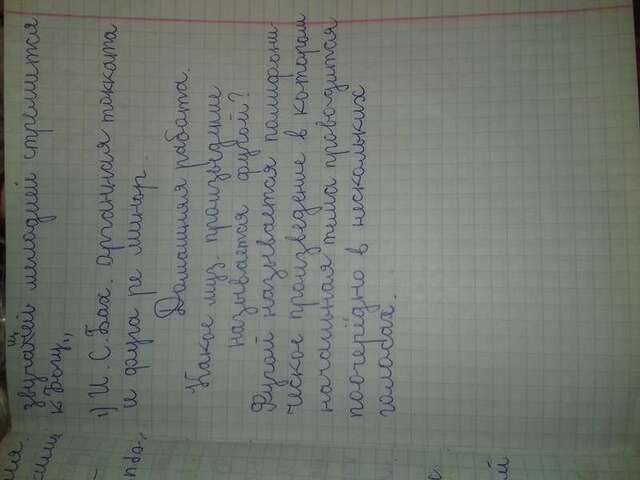 звучащей мелодией стремится
к Богу"
1) И. С. Бах. органная токката
и фуга ре минор.
Домашняя работа.
Какое муз. произведение
называется фугой?
Фугой называется полифони-
ческое произведение в котором
начальная тема проводится
поочерёдно в нескольких
голосах.